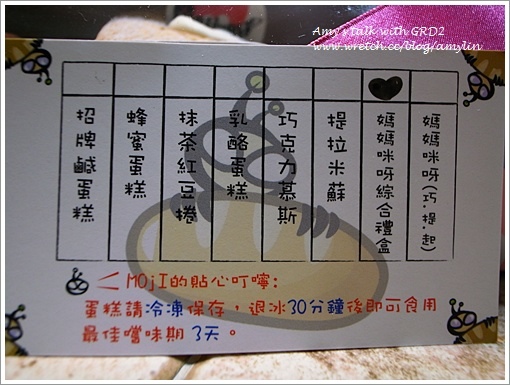 Amy's talk with GRD2
www.wretch.cc/blog/amylin
媽媽咪呀(巧.提.起)
媽媽咪呀綜合禮盒
提拉米蘇
巧克力慕斯
乳酪蛋糕
抹茶紅豆捲
蜂蜜蛋糕
招牌鹹蛋糕
MOjI的貼心叮嚀:
蛋糕請冷凍保存，退冰30分鐘後即可食用
最佳嚐味期 3天。